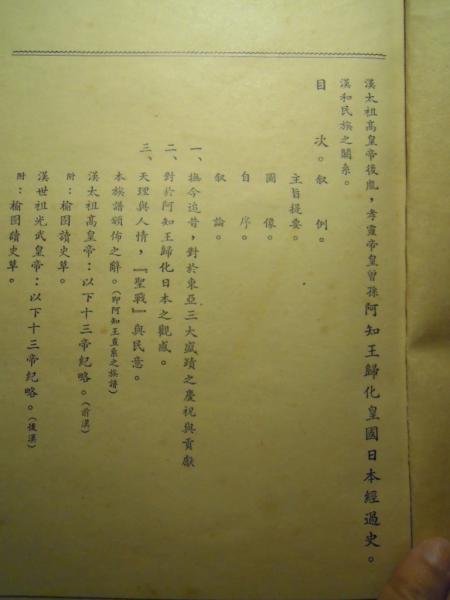 漢太祖高皇帝後胤，孝靈帝皇曾孫阿知王歸化皇國日本經過史。
漢和民族之關系。
目　次。叙　例。
主旨提要。
圖　像。
自　序。
叙　論。
一、撫今追昔，對於東亞三大盛蹟之慶祝與貢獻
二、對於阿知王歸化日本之觀感。
三、天理與人情，『聖戰』與民意。
本族譜頒佈之辭。（即阿知王直系之族譜）
漢太祖高皇帝：以下十三帝紀略。（前漢）
附：榆園讀史草。
漢世祖光武皇帝：以下十三帝紀略。（後漢）
附：榆園讀史草。